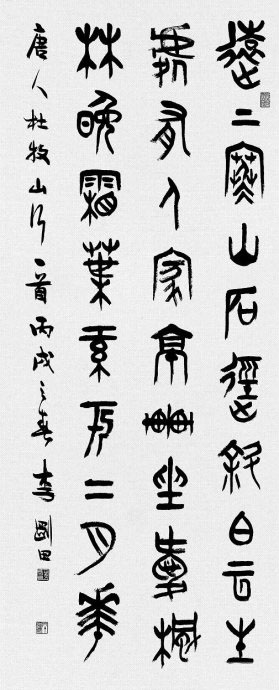 遠上寒山石徑斜白云生
處有人家亭車坐愛楓
林晚霜葉紅於二月華
唐人杜牧山行一首丙戌之春李剛田